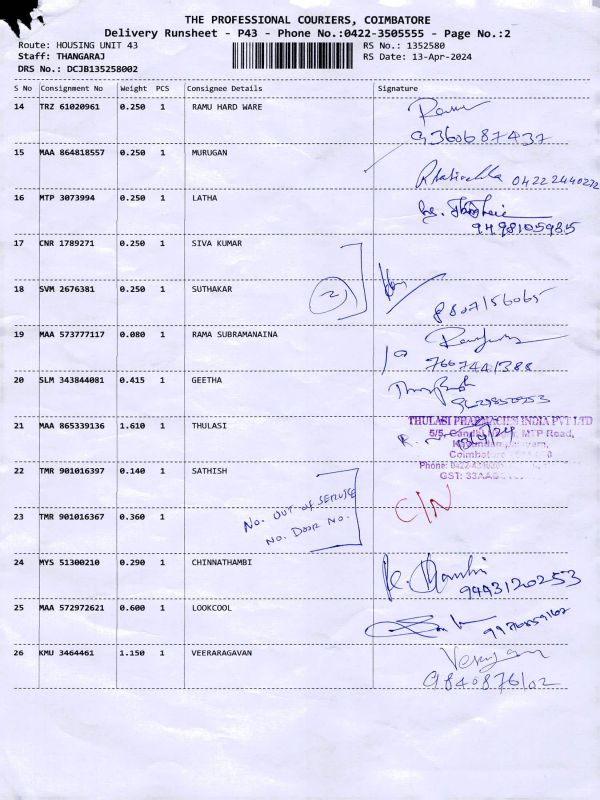 THE PROFESSIONAL COURIERS, COIMBATORE
Delivery Runsheet - P43 - Phone No.:0422-3505555 - Page No.:2
Route: HOUSING UNIT 43 RS No.: 1352580
Staff: THANGARAJ RS Date: 13-Apr-2024
DRS No.: DCJB135258002
S No Consignment No Weight PCS Consignee Details Signature
14 TRZ 61020961 0.250 1 RAMU HARD WARE
9360687437
15 MAA 864818557 0.250 1 MURUGAN
04222440272
16 MTP 3073994 0.250 1 LATHA
9498105985
17 CNR 1789271 0.250 1 SIVA KUMAR
18 SVM 2676381 0.250 1 SUTHAKAR
2
8807156065
19 MAA 573777117 0.080 1 RAMA SUBRAMANAINA
7667441388
20 SLM 343844081 0.415 1 GEETHA
21 MAA 865339136 1.610 1 THULASI
THULASI PHARMACIES INDIA PVT LTD
MTP Road,
22 TMR 901016397 0.140 1 SATHISH
NO. OUT OF SERVICE
NO. DOOR NO.
C/N
23 TMR 901016367 0.360 1
24 MYS 51300210 0.290 1 CHINNATHAMBI
9993120253
25 MAA 572972621 0.600 1 LOOKCOOL
26 KMU 3464461 1.150 1 VEERARAGAVAN
9840876102